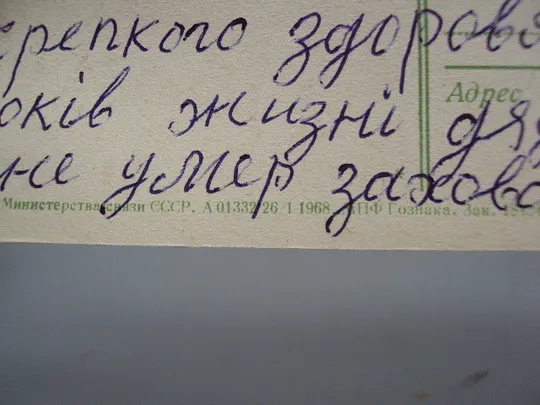 крепкого здоров
Адрес
оків жизні дя
не умер захова
Министерства связи СССР. А 01332 26/I 1968. МПФ Гознака. Зак.